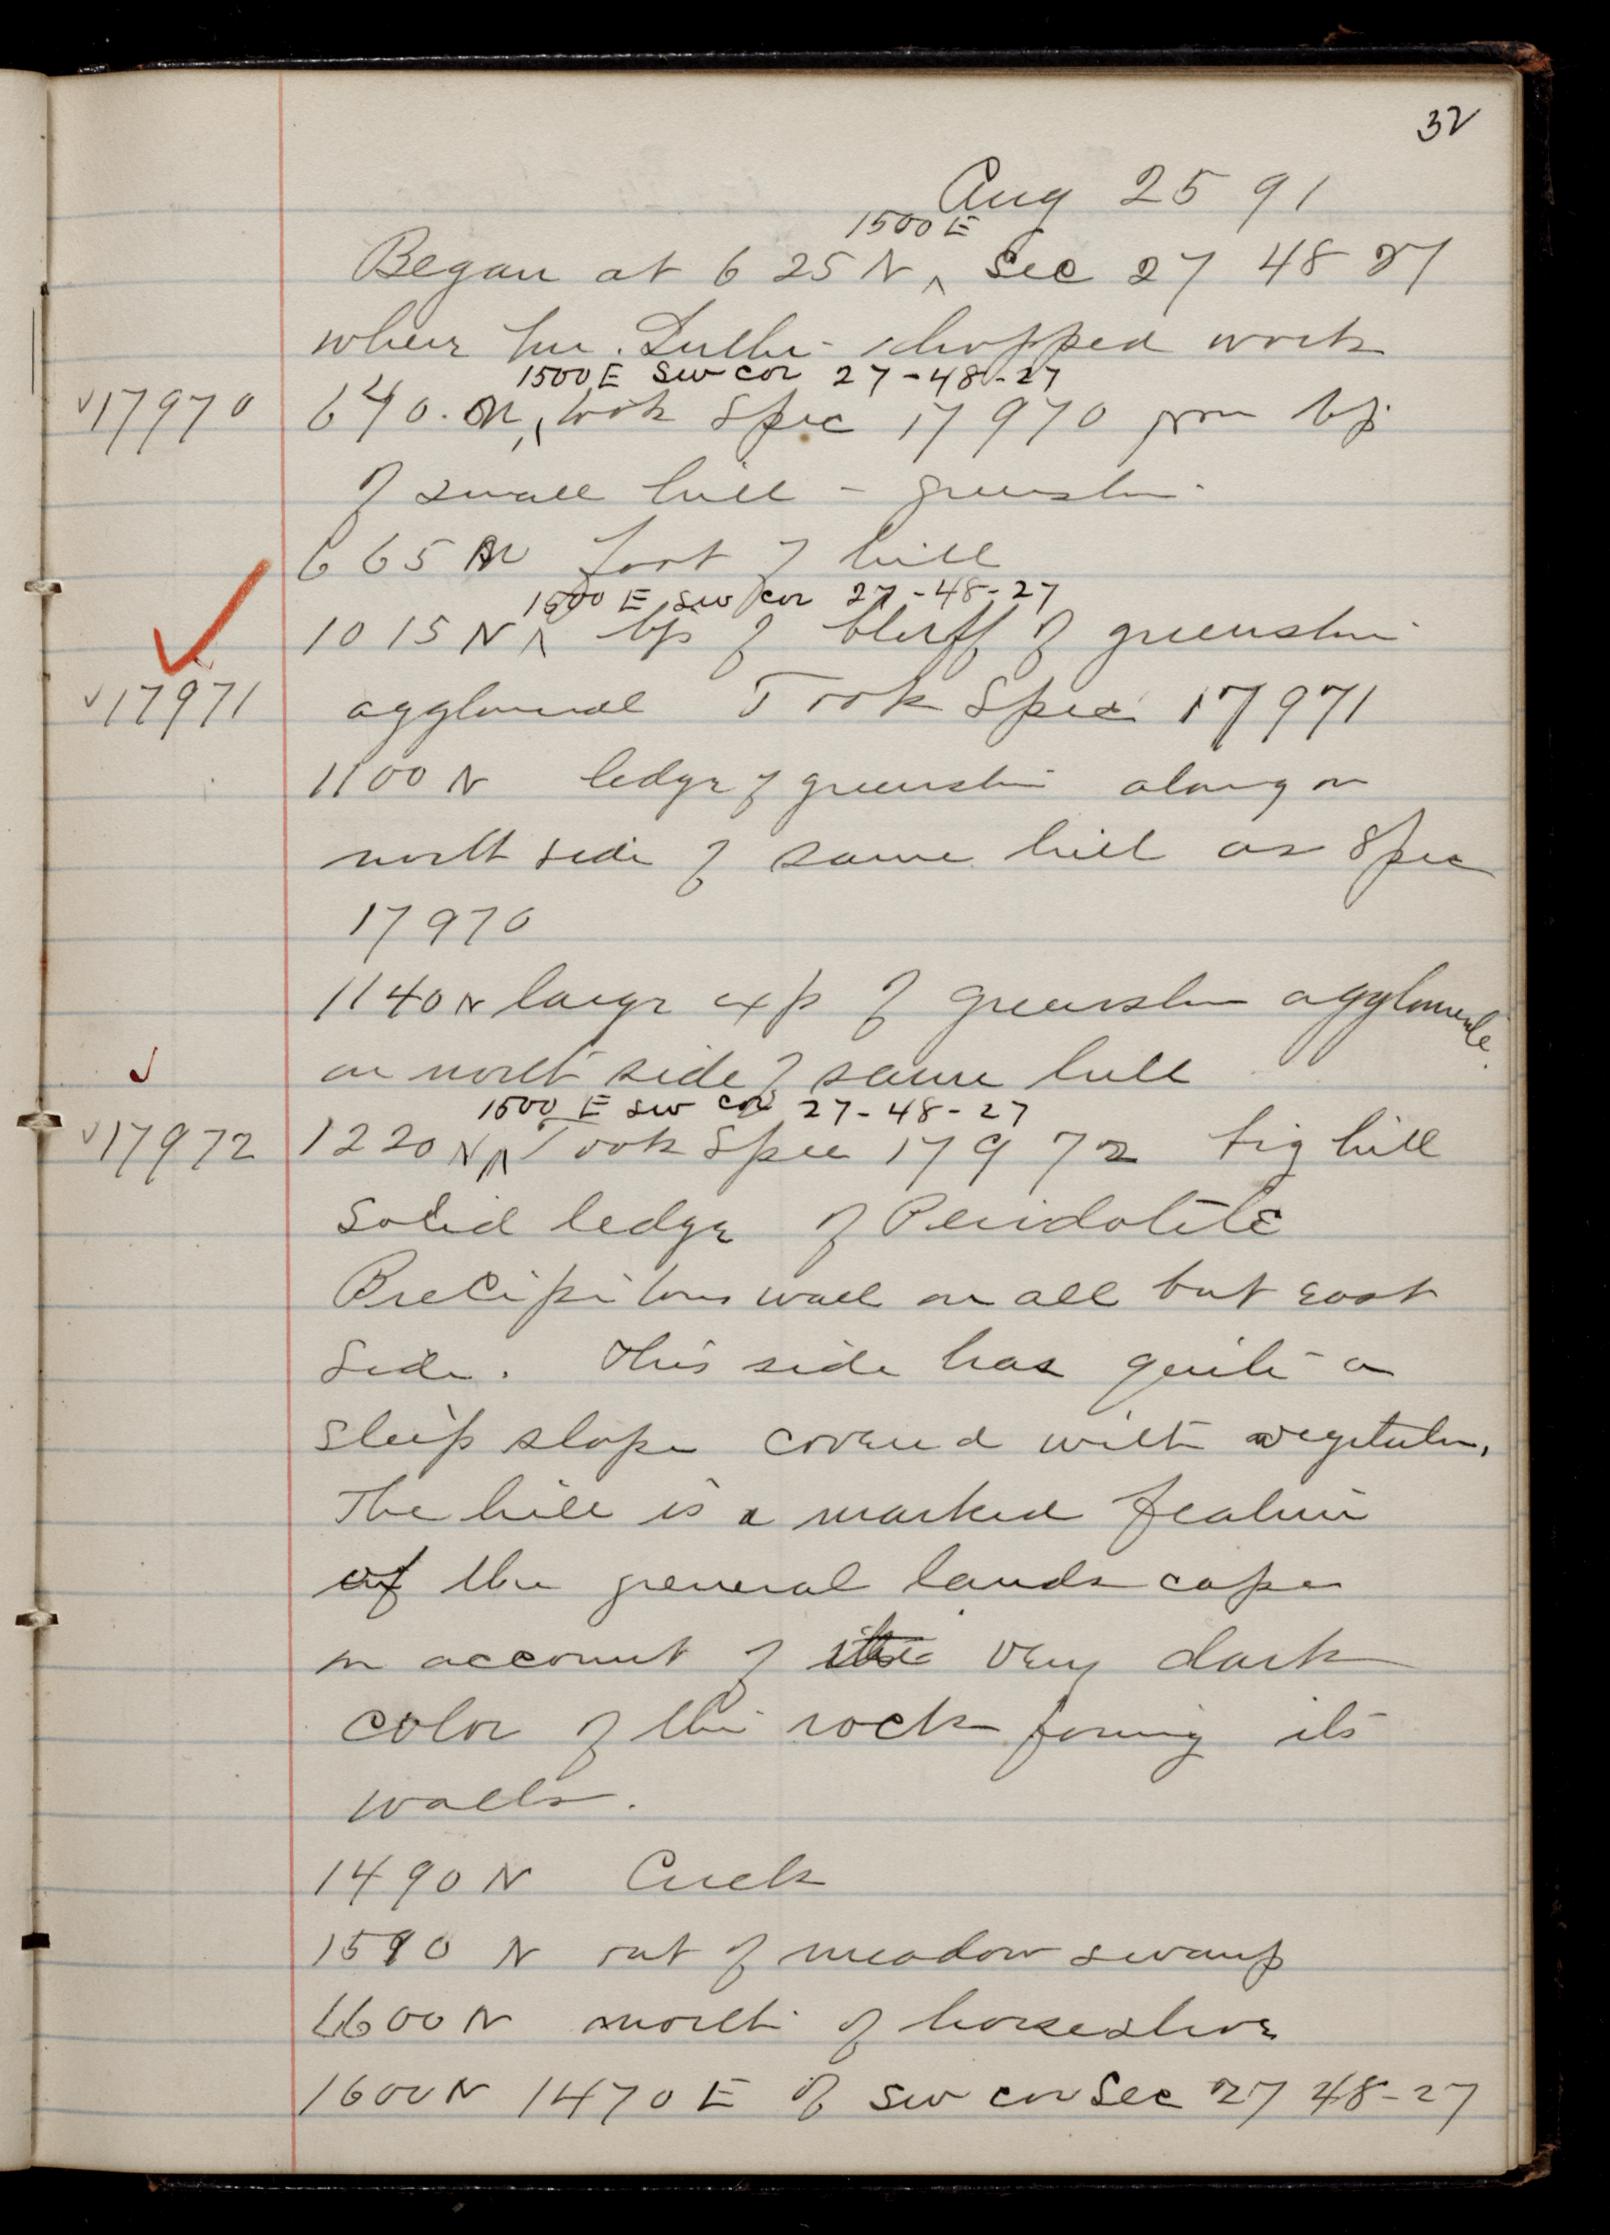 32
Aug 25 91
1500 E
Began at 625 N ^ Sec 27 48 27
where Mr. stopped work
1500 E SW cor 27-48-27
✓17970 640. N ^ took Spec 17970 from top
of small hill - greenstone
665 N foot of hill
1500 E SW cor 27-48-27
1015 N ^ top of bluff of greenstone
✓17971 agglomerate Took Spec 17971
1100 N ledge of greenstone along on
north side of same hill as Spec
17970
1140 N large exp of greenstone agglomerate.
on north side of same hill
1500 E SW cor 27-48-27
✓17972 1220 N ^ Took Spec 17972 big hill
Solid ledge of Peridotite
Precipitous wall on all but east
Side. This side has quite a
steep slope covered with vegetation.
The hill is a marked feature
of the general landscape
on account of very dark
color of the rock forming its
walls.
1490 N Creek
1590 N out of meadow swamp
1600 N north of horseshoe
1600 N 1470 E of SW cor Sec 27 48-27